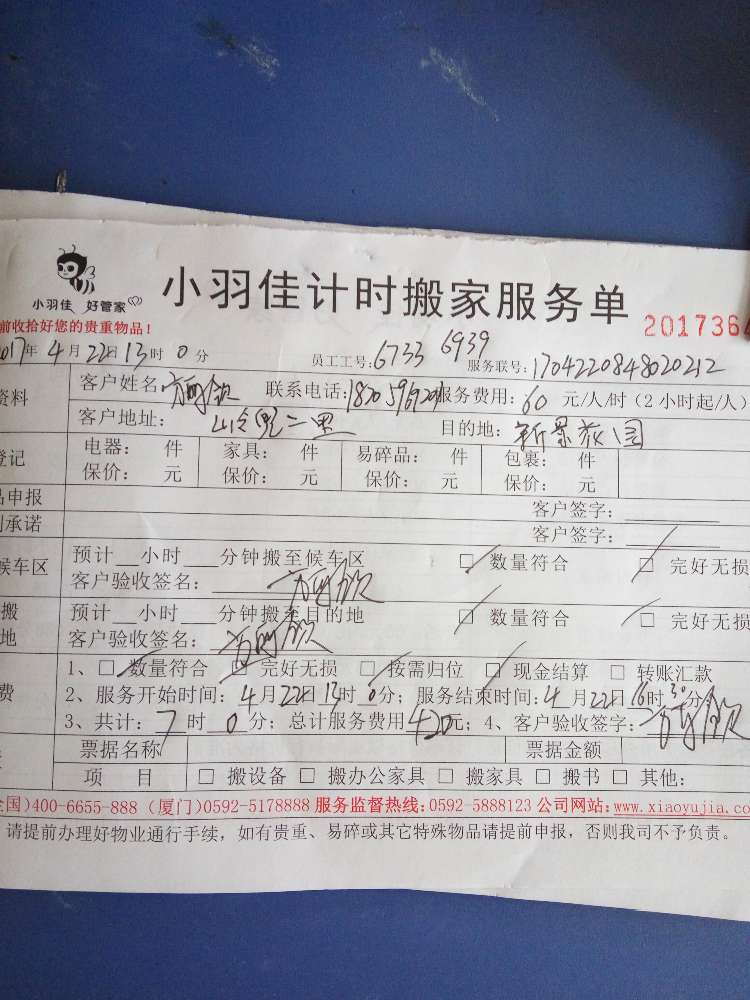 小羽佳 好管家
小羽佳计时搬家服务单
前收拾好您的贵重物品！
201736
2017年 4月22日13时0分 员工工号：6733 6939 服务联号：1704220848020212
资料
客户姓名： 联系电话： 服务费用：60 元/人/时（2小时起/人）
客户地址： 岭兜二里 目的地：新景
登记
电器： 件 家具： 件 易碎品： 件 包裹： 件
保价： 元 保价： 元 保价： 元 保价： 元
品申报 客户签字：
承诺 客户签字：
候车区
预计__小时__分钟搬至候车区 □ 数量符合 □ 完好无损
客户验收签名：
搬
地
预计__小时__分钟搬至目的地 □ 数量符合 □ 完好无损
客户验收签名：
费
1、□ 数量符合 □ 完好无损 □ 按需归位 □ 现金结算 □ 转账汇款
2、服务开始时间：4月22日13时0分；服务结束时间：4月22日16时30分
3、共计：7时0分；总计服务费用420元；4、客户验收签字：
票据名称 票据金额
项 目 □ 搬设备 □ 搬办公家具 □ 搬家具 □ 搬书 □ 其他：
全国)400-6655-888 (厦门)0592-5178888 服务监督热线:0592-5888123 公司网站:www.xiaoyujia.co
请提前办理好物业通行手续，如有贵重、易碎或其它特殊物品请提前申报，否则我司不予负责。